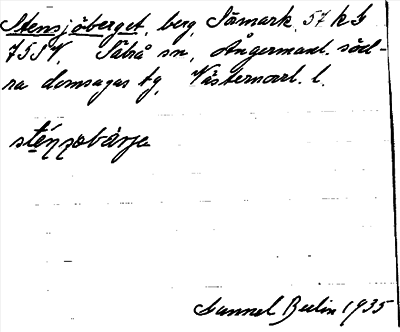 Stensjöberget, berg, Tömark, 57 kb
75 SV, Säbrå sn, Ångermanl. söd-
ra domsagas tg, Västernorrl. l.
sténsøbàrje
Samuel Burlin 1935